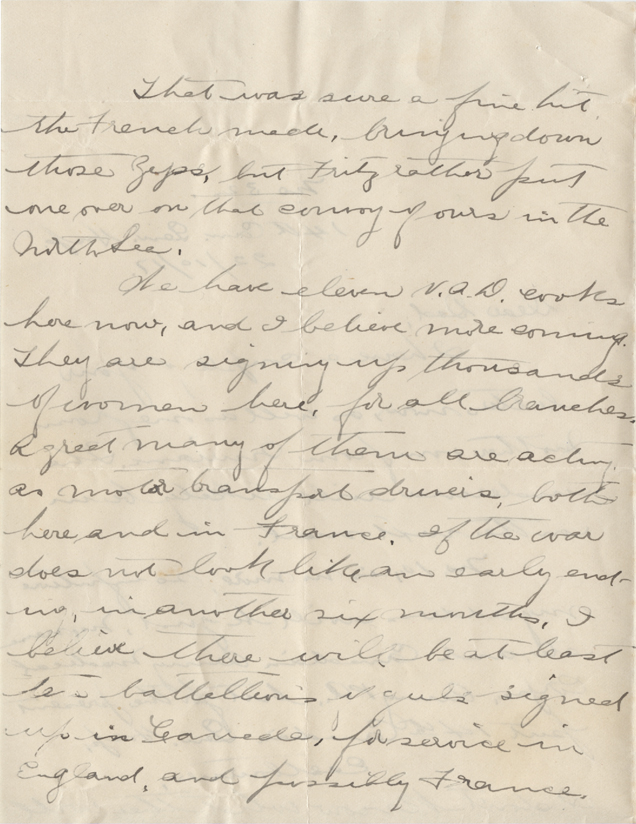 That was sure a fine hit
the French made, bringing down
those Zeps, but Fritz rather put
one over on that convoy of ours in the
North Sea.
We have eleven V.A.D. cooks
here now, and I believe more coming.
They are signing up thousands
of women here, for all branches.
A great many of them are acting
as motor transport drivers, both
here and in France. If the war
does not look like an early end-
ing, in another six months, I
believe there will be at least
battellions of gals signed
up in Canada, for service in
England, and possibly France.